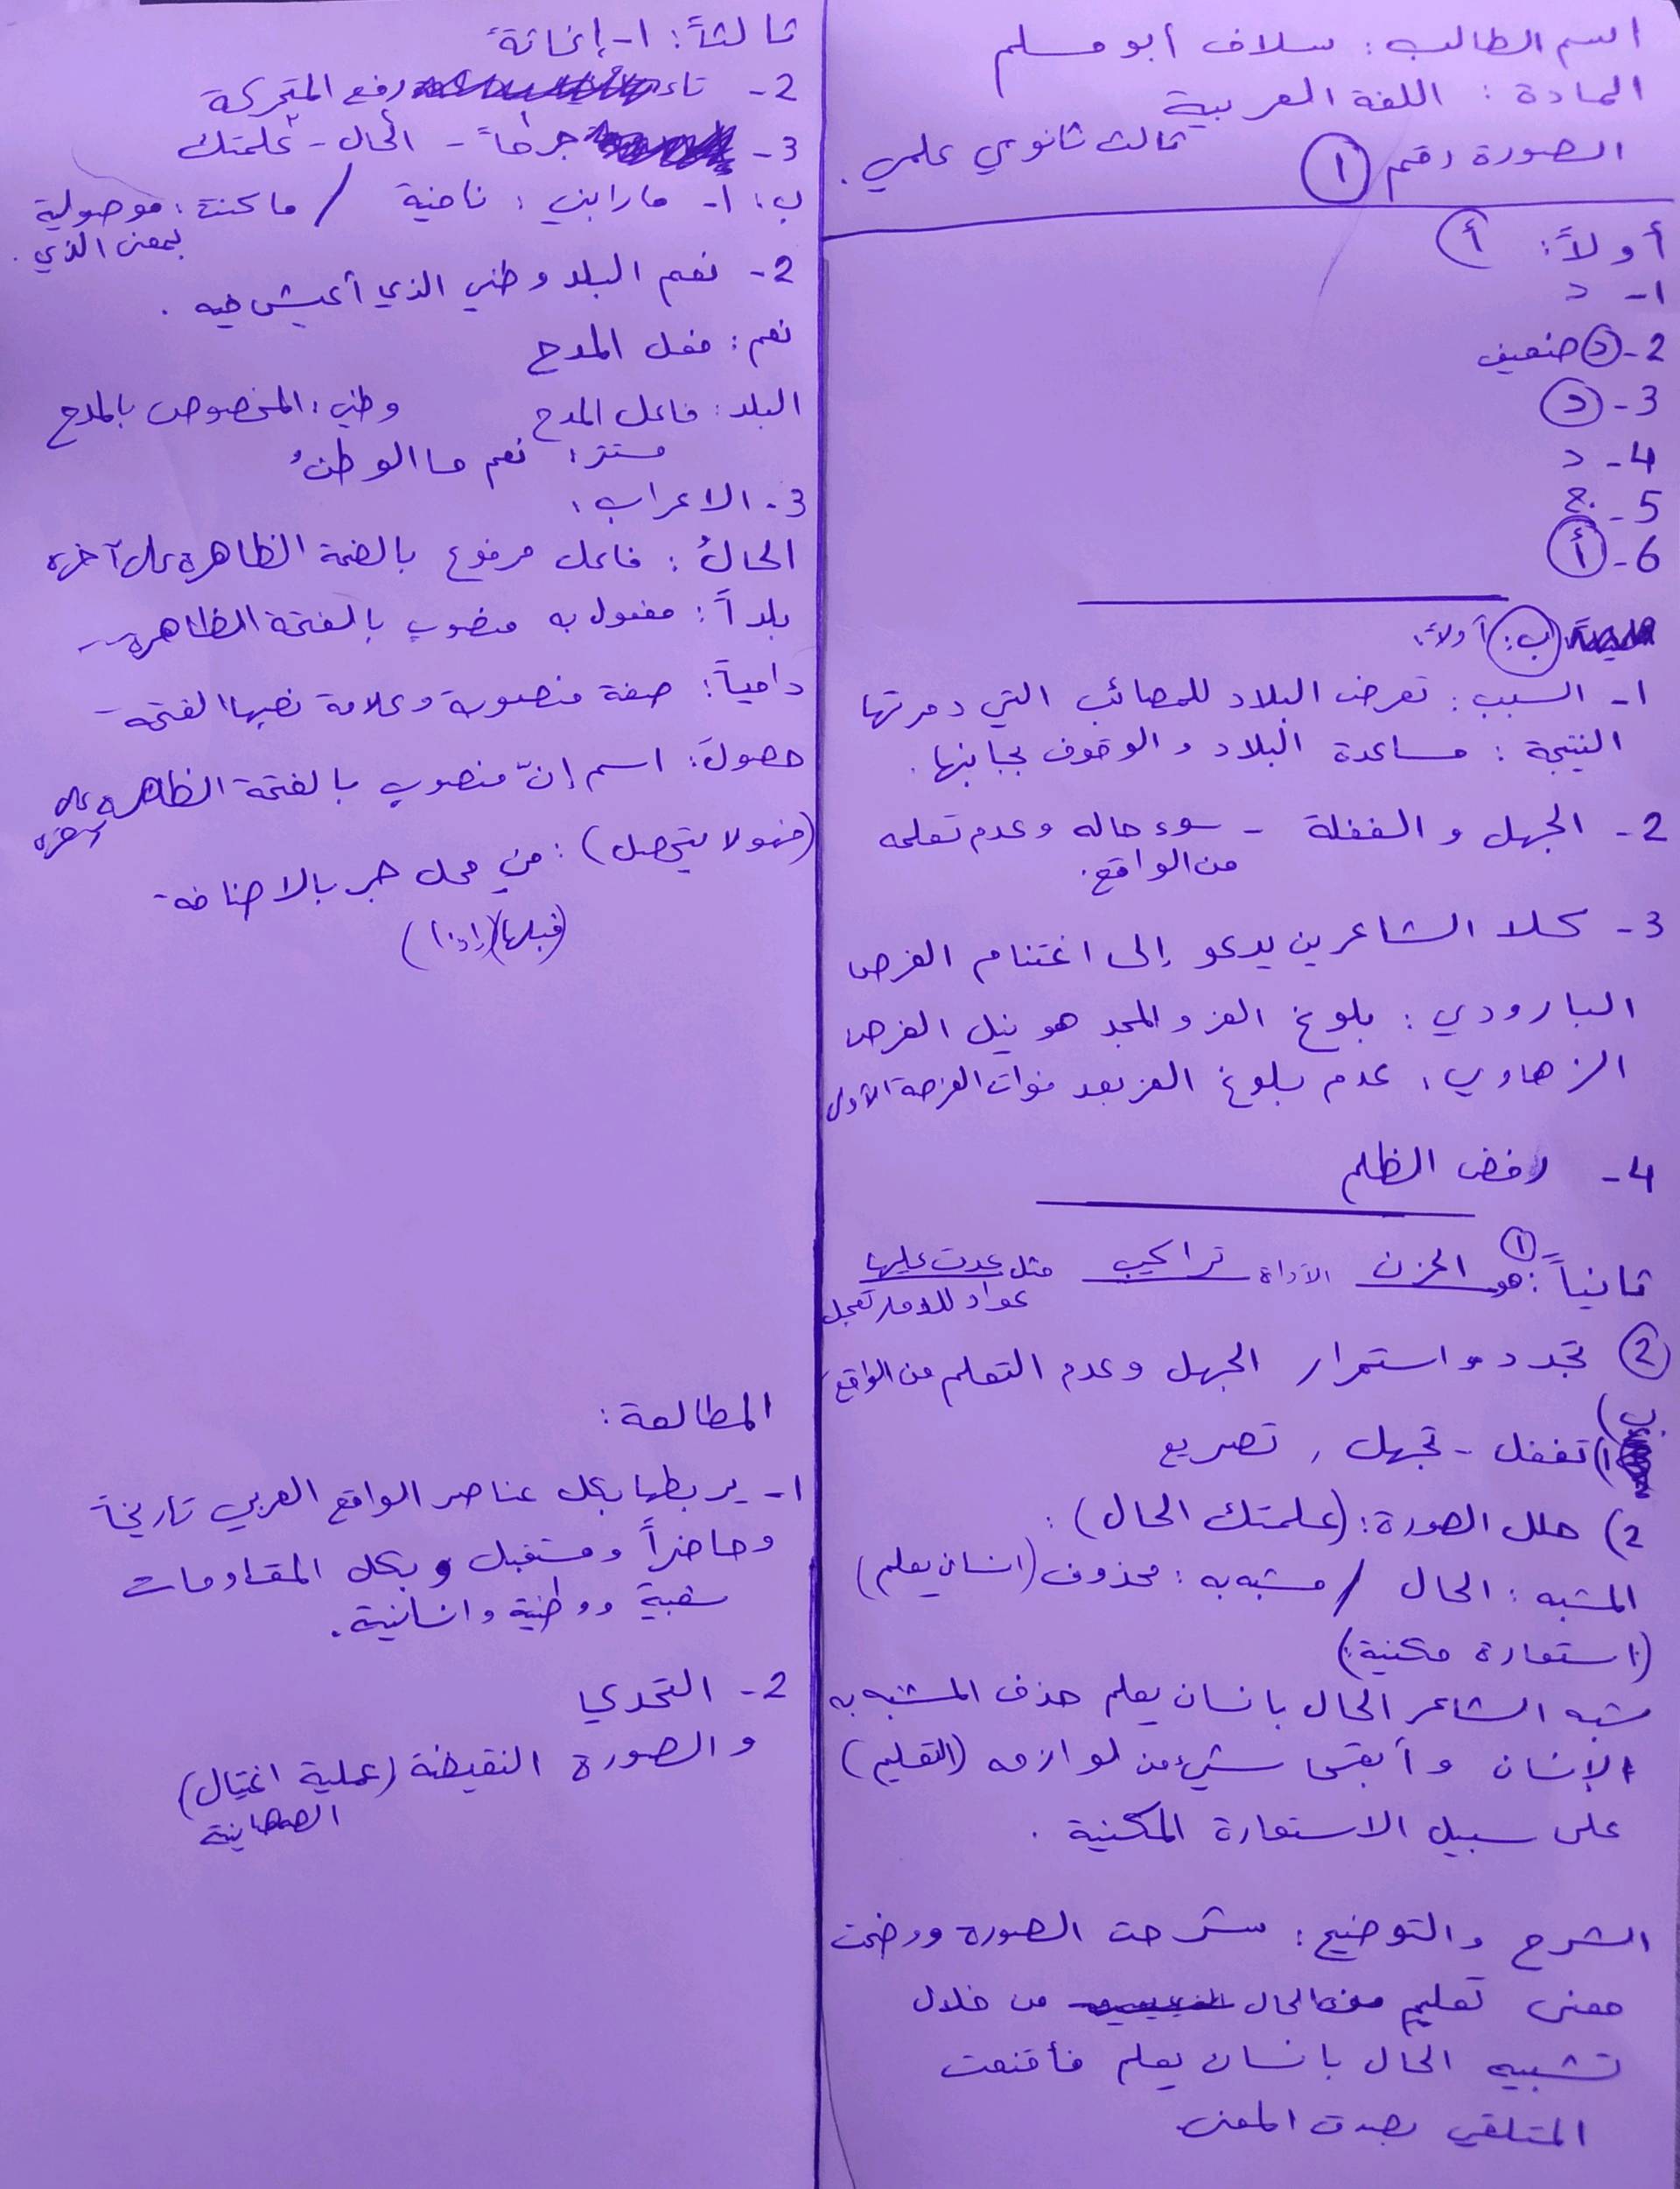 اسم الطالب : سلاف أبو مسلم
المادة : اللغة العربية
الصورة رقم ١ ثالث ثانوي علمي .
أولاً : أ
١- د
2- د ضعيف
3- د
4- د
5- ج
6- أ
ب: أولاً:
١- السبب : تعرض البلاد للمصائب التي دمرتها
النتيجة : مساعدة البلاد والوقوف بجانبها .
2- الجهل والغفلة - سوء حاله وعدم تعلمه
من الواقع .
3- كلا الشاعرين يدعو إلى اغتنام الفرص
البارودي : بلوغ العز والمجد هو نيل الفرص
الزهاوي : عدم بلوغ العز بعد فوات الفرصة الأولى
4- رفض الظلم
ثانياً : ١ هو الحزن الأداة تراكيب مثل عدت عليها
عواد للدمار تعجل
2 تجدد واستمرار الجهل وعدم التعلم من الواقع
ب)
١) تغفل - تجهل , تصريع
2) حلل الصورة : (علمتك الحال) :
المشبه : الحال / مشبه به : محذوف (انسان يعلم)
(استعارة مكنية)
شبه الشاعر الحال بانسان يعلم حذف المشبه به
الإنسان وأبقى شيء من لوازمه (التعليم)
على سبيل الاستعارة المكنية .
الشرح والتوضيح : شرحت الصورة ووضحت
معنى تعليم الحال من خلال
تشبيه الحال بانسان يعلم فأقنعت
المتلقي بصدق المعنى
ثالثاً : ١- إغاثة
2- تاء رفع المتحركة
3- جرحاً - الحال - علمتك
ب : ١- ما رابني : نافية / ما كنت : موصولية
بمعنى الذي .
2- نعم البلد وطني الذي أعيش فيه .
نعم : فعل المدح
البلد : فاعل المدح وطني : المخصوص بالمدح
مستتر : نعم ما الوطنُ
3- الاعراب :
الحالُ : فاعل مرفوع بالضمة الظاهرة على آخره
بلداً : مفعول به منصوب بالفتحة الظاهرة
دامياً : صفة منصوبة وعلامة نصبها الفتحة
حصولَ : اسم إنّ منصوب بالفتحة الظاهرة على
آخره
(فهو لا يتحصل) : في محل جر بالاضافة
(قبلها) (إذا)
المطالعة :
١- يربطها بكل عناصر الواقع العربي تاريخاً
وحاضراً ومستقبل وبكل المقاومات
شعبية ووطنية وانسانية .
2- التحدي
والصورة النقيضة (عملية اغتيال)
الصهاينة